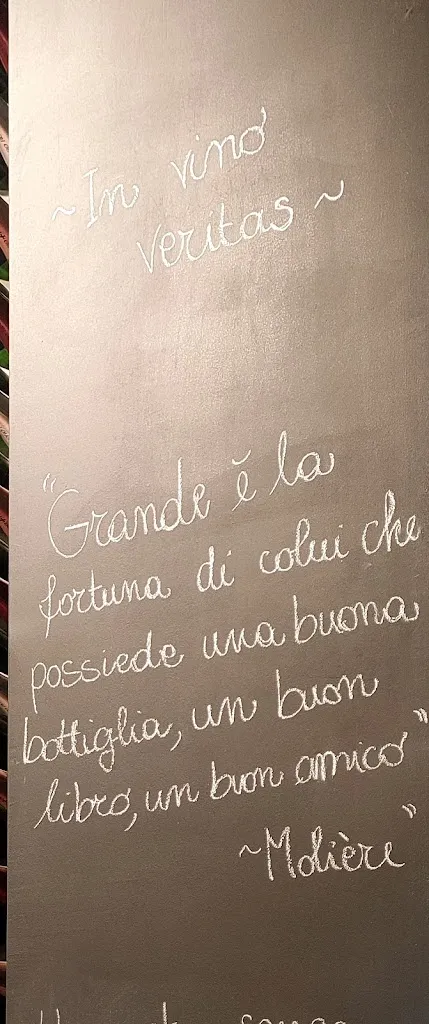 ~In vino
veritas~
"Grande è la
fortuna di colui che
possiede una buona
bottiglia, un buon
libro, un buon amico"
~Molière"